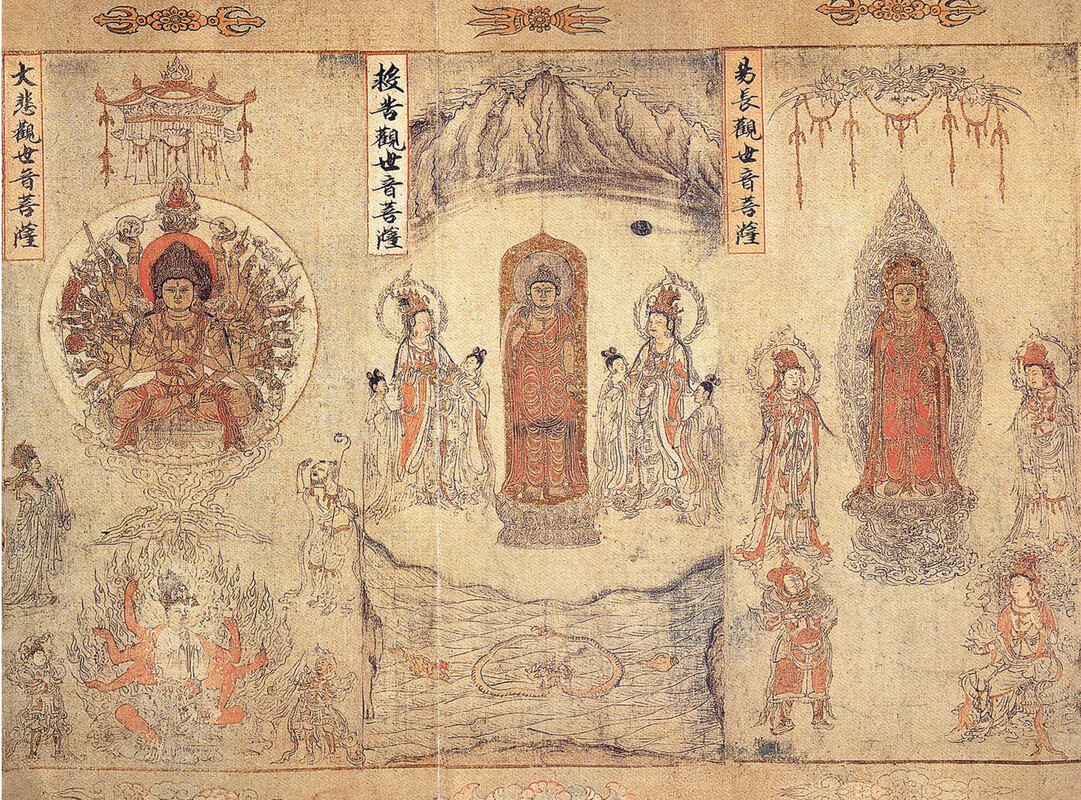 易長觀世音菩薩
苦觀世音菩薩
大悲觀世音菩薩